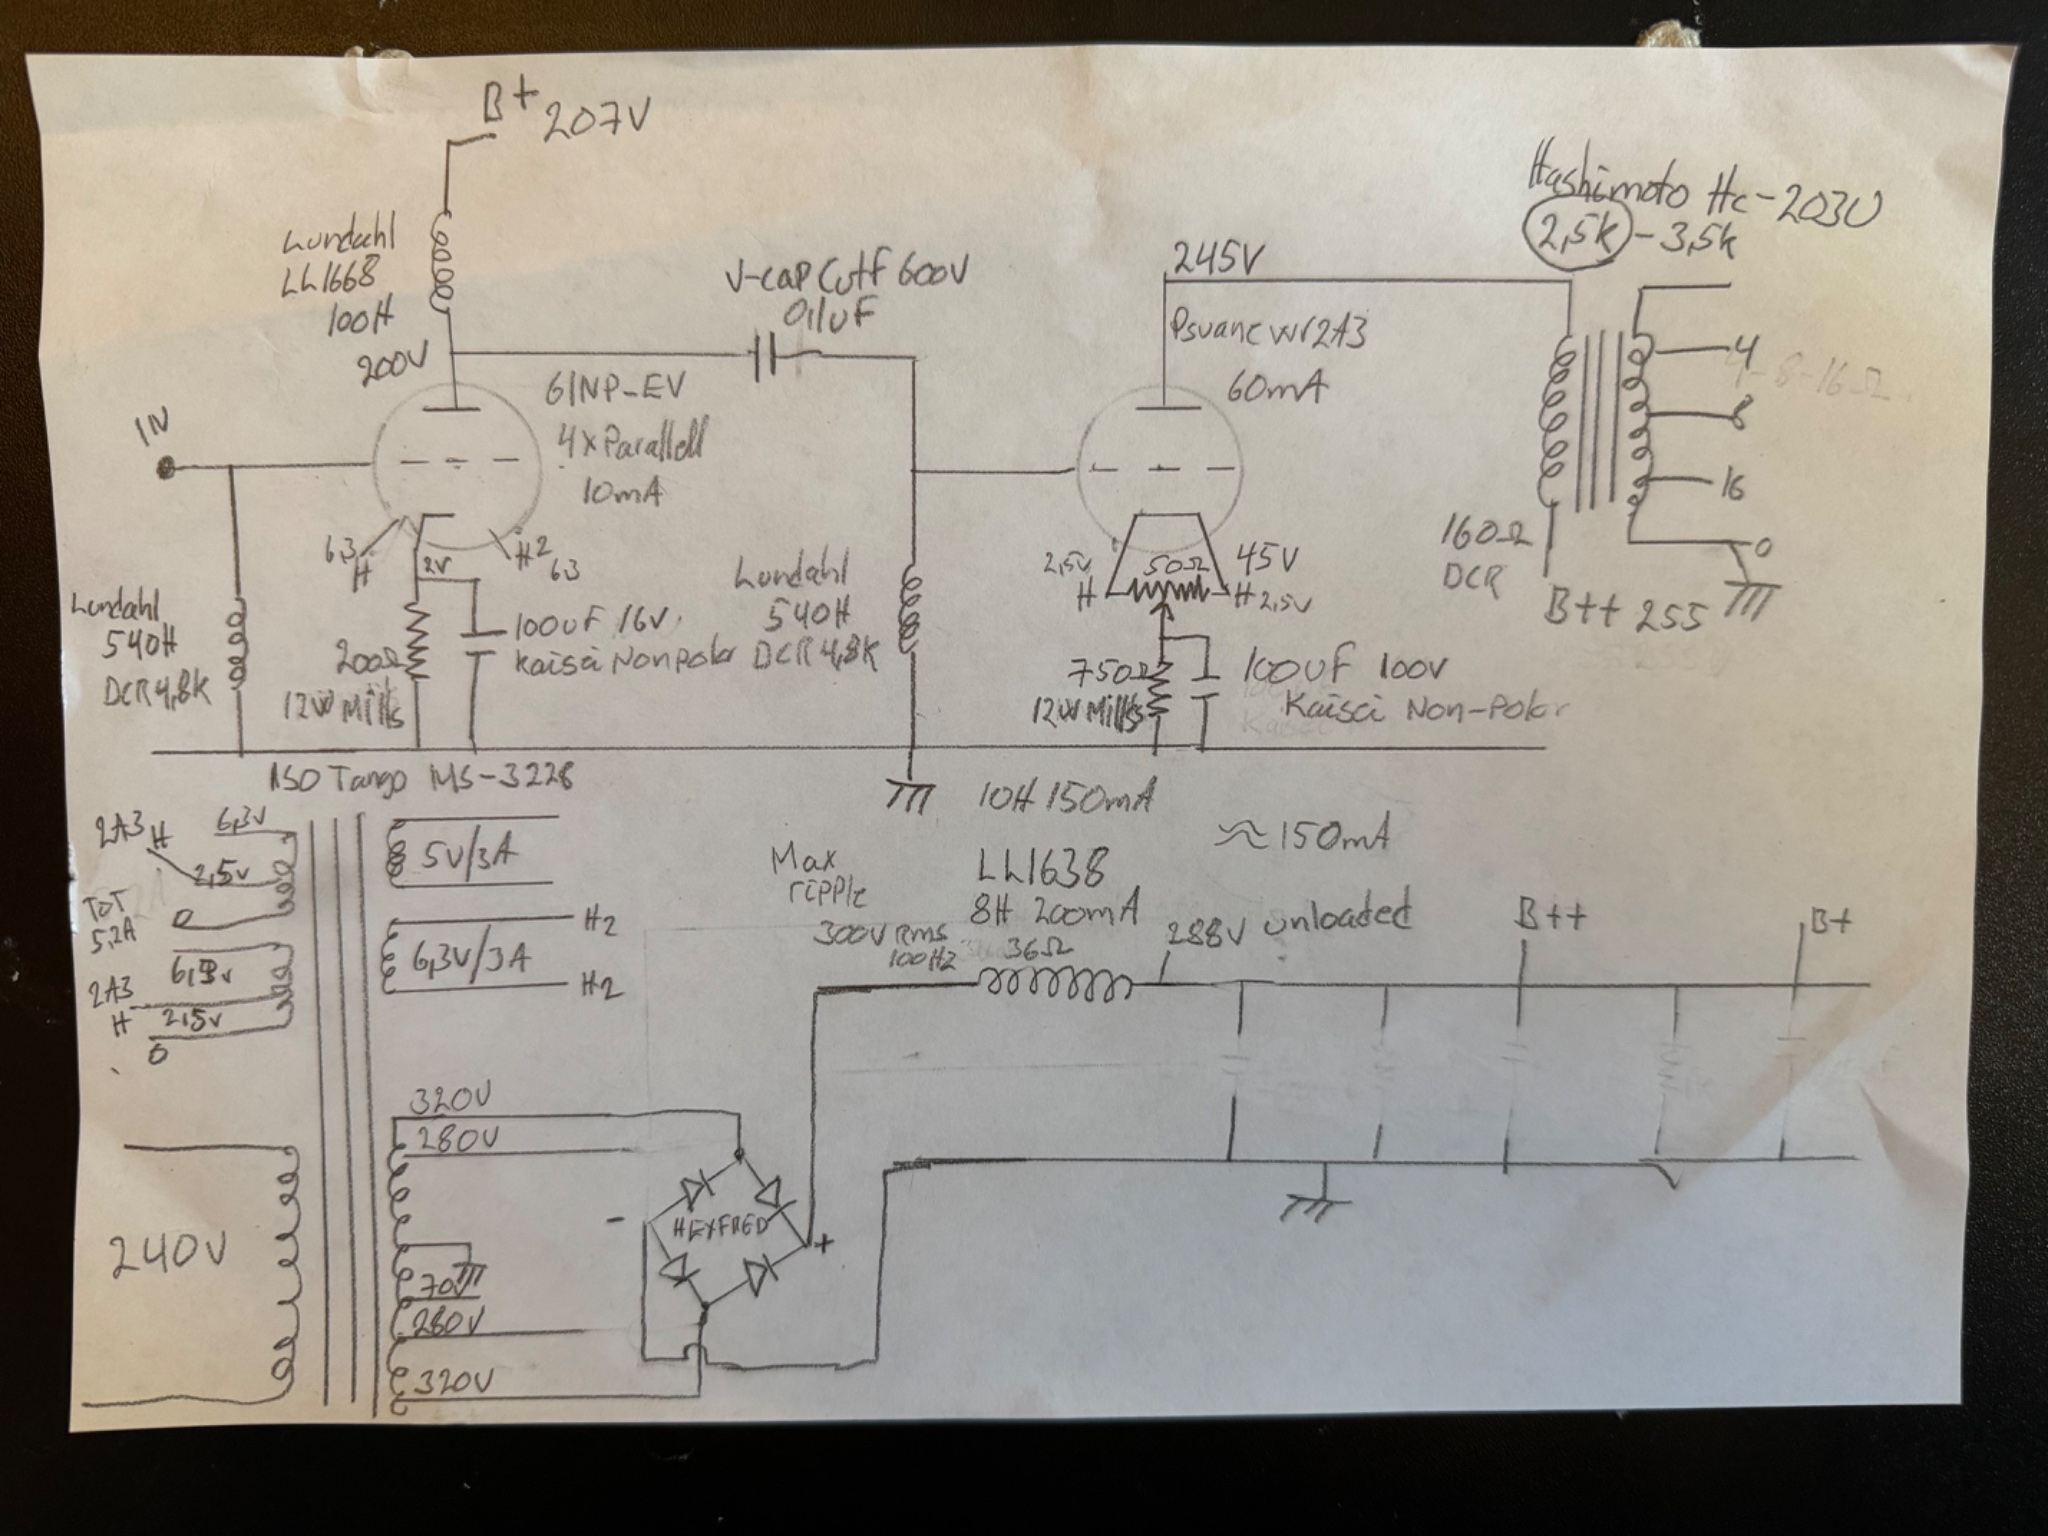 B+ 207V
Lundahl
LL1668
100H
200V
V-cap Cutf 600V
0,1uF
245V
Hashimoto Hc-203U
2,5k - 3,5k
61NP-EV
4xParallell
10mA
Psvane WR2A3
60mA
4
4-8-16Ω
8
16
0
IN
6,3
H
H2
6,3
2V
Lundahl
540H
DCR 4,8K
200Ω
12W Mills
100uF 16V
Kaisei Nonpolar
Lundahl
540H
DCR 4,8K
2,5V
H
50Ω
45V
H 2,5V
750Ω
12W Mills
100uF 100V
Kaisei Non-Polar
160Ω
DCR
B++ 255
ISO Tango MS-3228
2A3 H
6,3V
2,5V
0
TOT
5,2A
6,3V
2A3
H
2,5V
0
5V/3A
6,3V/3A
H2
H2
10H 150mA
≈ 150mA
Max
ripple
300V RMS
100Hz
LL1638
8H 200mA
36Ω
288V unloaded
B++
B+
240V
320V
280V
70V
280V
320V
HEXFRED
-
+